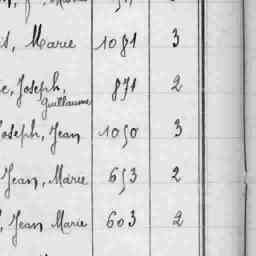 Marie 1081 3
Joseph, 871 2
Guillaume
Joseph, Jean 1050 3
Jean, Marie 653 2
Jean Marie 603 2